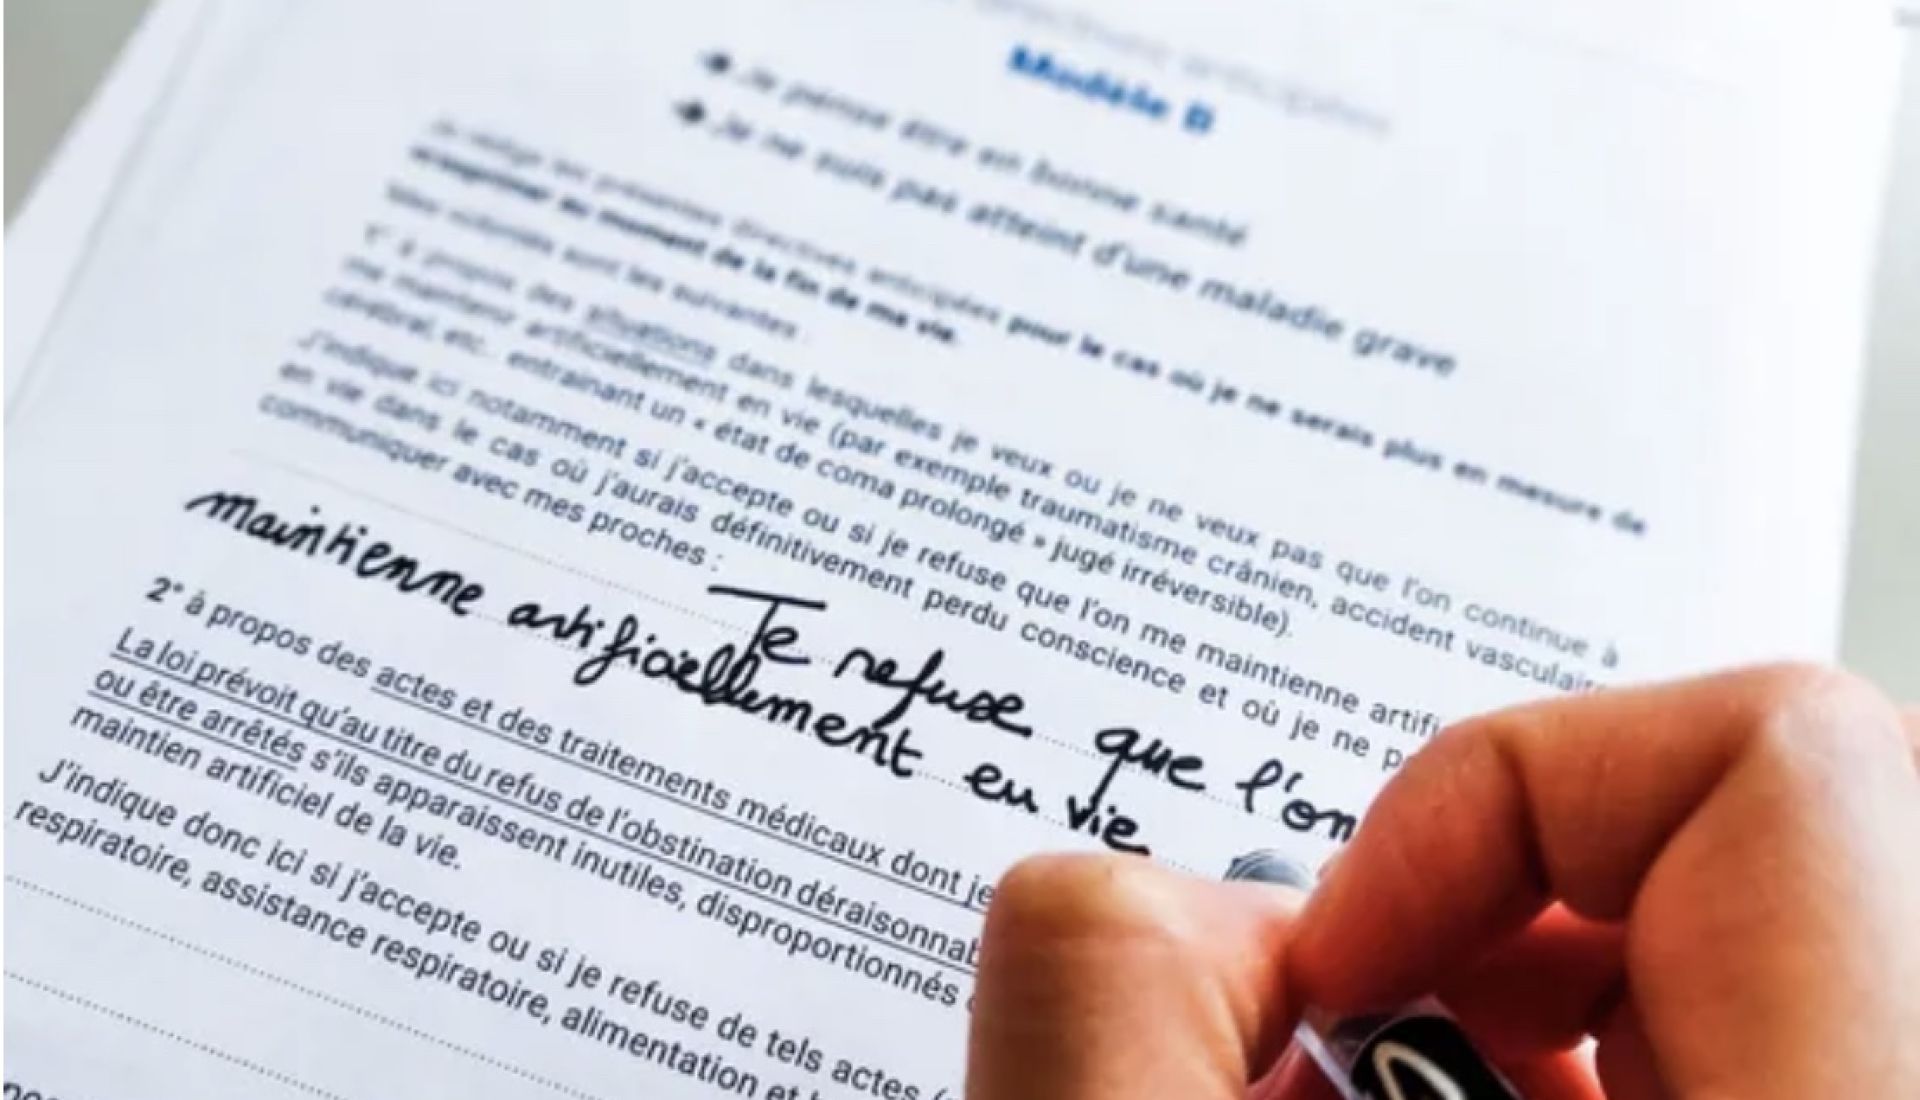 Modèle B
Je pense être en bonne santé
Je ne suis pas atteint d'une maladie grave
Je rédige les présentes directives anticipées pour le cas où je ne serais plus en mesure de
m'exprimer au moment de la fin de ma vie.
Mes volontés sont les suivantes :
1° à propos des situations dans lesquelles je veux ou je ne veux pas que l'on continue à
me maintenir artificiellement en vie (par exemple traumatisme crânien, accident vasculaire
cérébral, etc. entrainant un « état de coma prolongé » jugé irréversible).
J'indique ici notamment si j'accepte ou si je refuse que l'on me maintienne artifi
en vie dans le cas où j'aurais définitivement perdu conscience et où je ne p
communiquer avec mes proches :
Je refuse que l'on
maintienne artificiellement en vie
2° à propos des actes et des traitements médicaux dont je
La loi prévoit qu'au titre du refus de l'obstination déraisonnab
ou être arrêtés s'ils apparaissent inutiles, disproportionnés
maintien artificiel de la vie.
J'indique donc ici si j'accepte ou si je refuse de tels actes (
respiratoire, assistance respiratoire, alimentation et